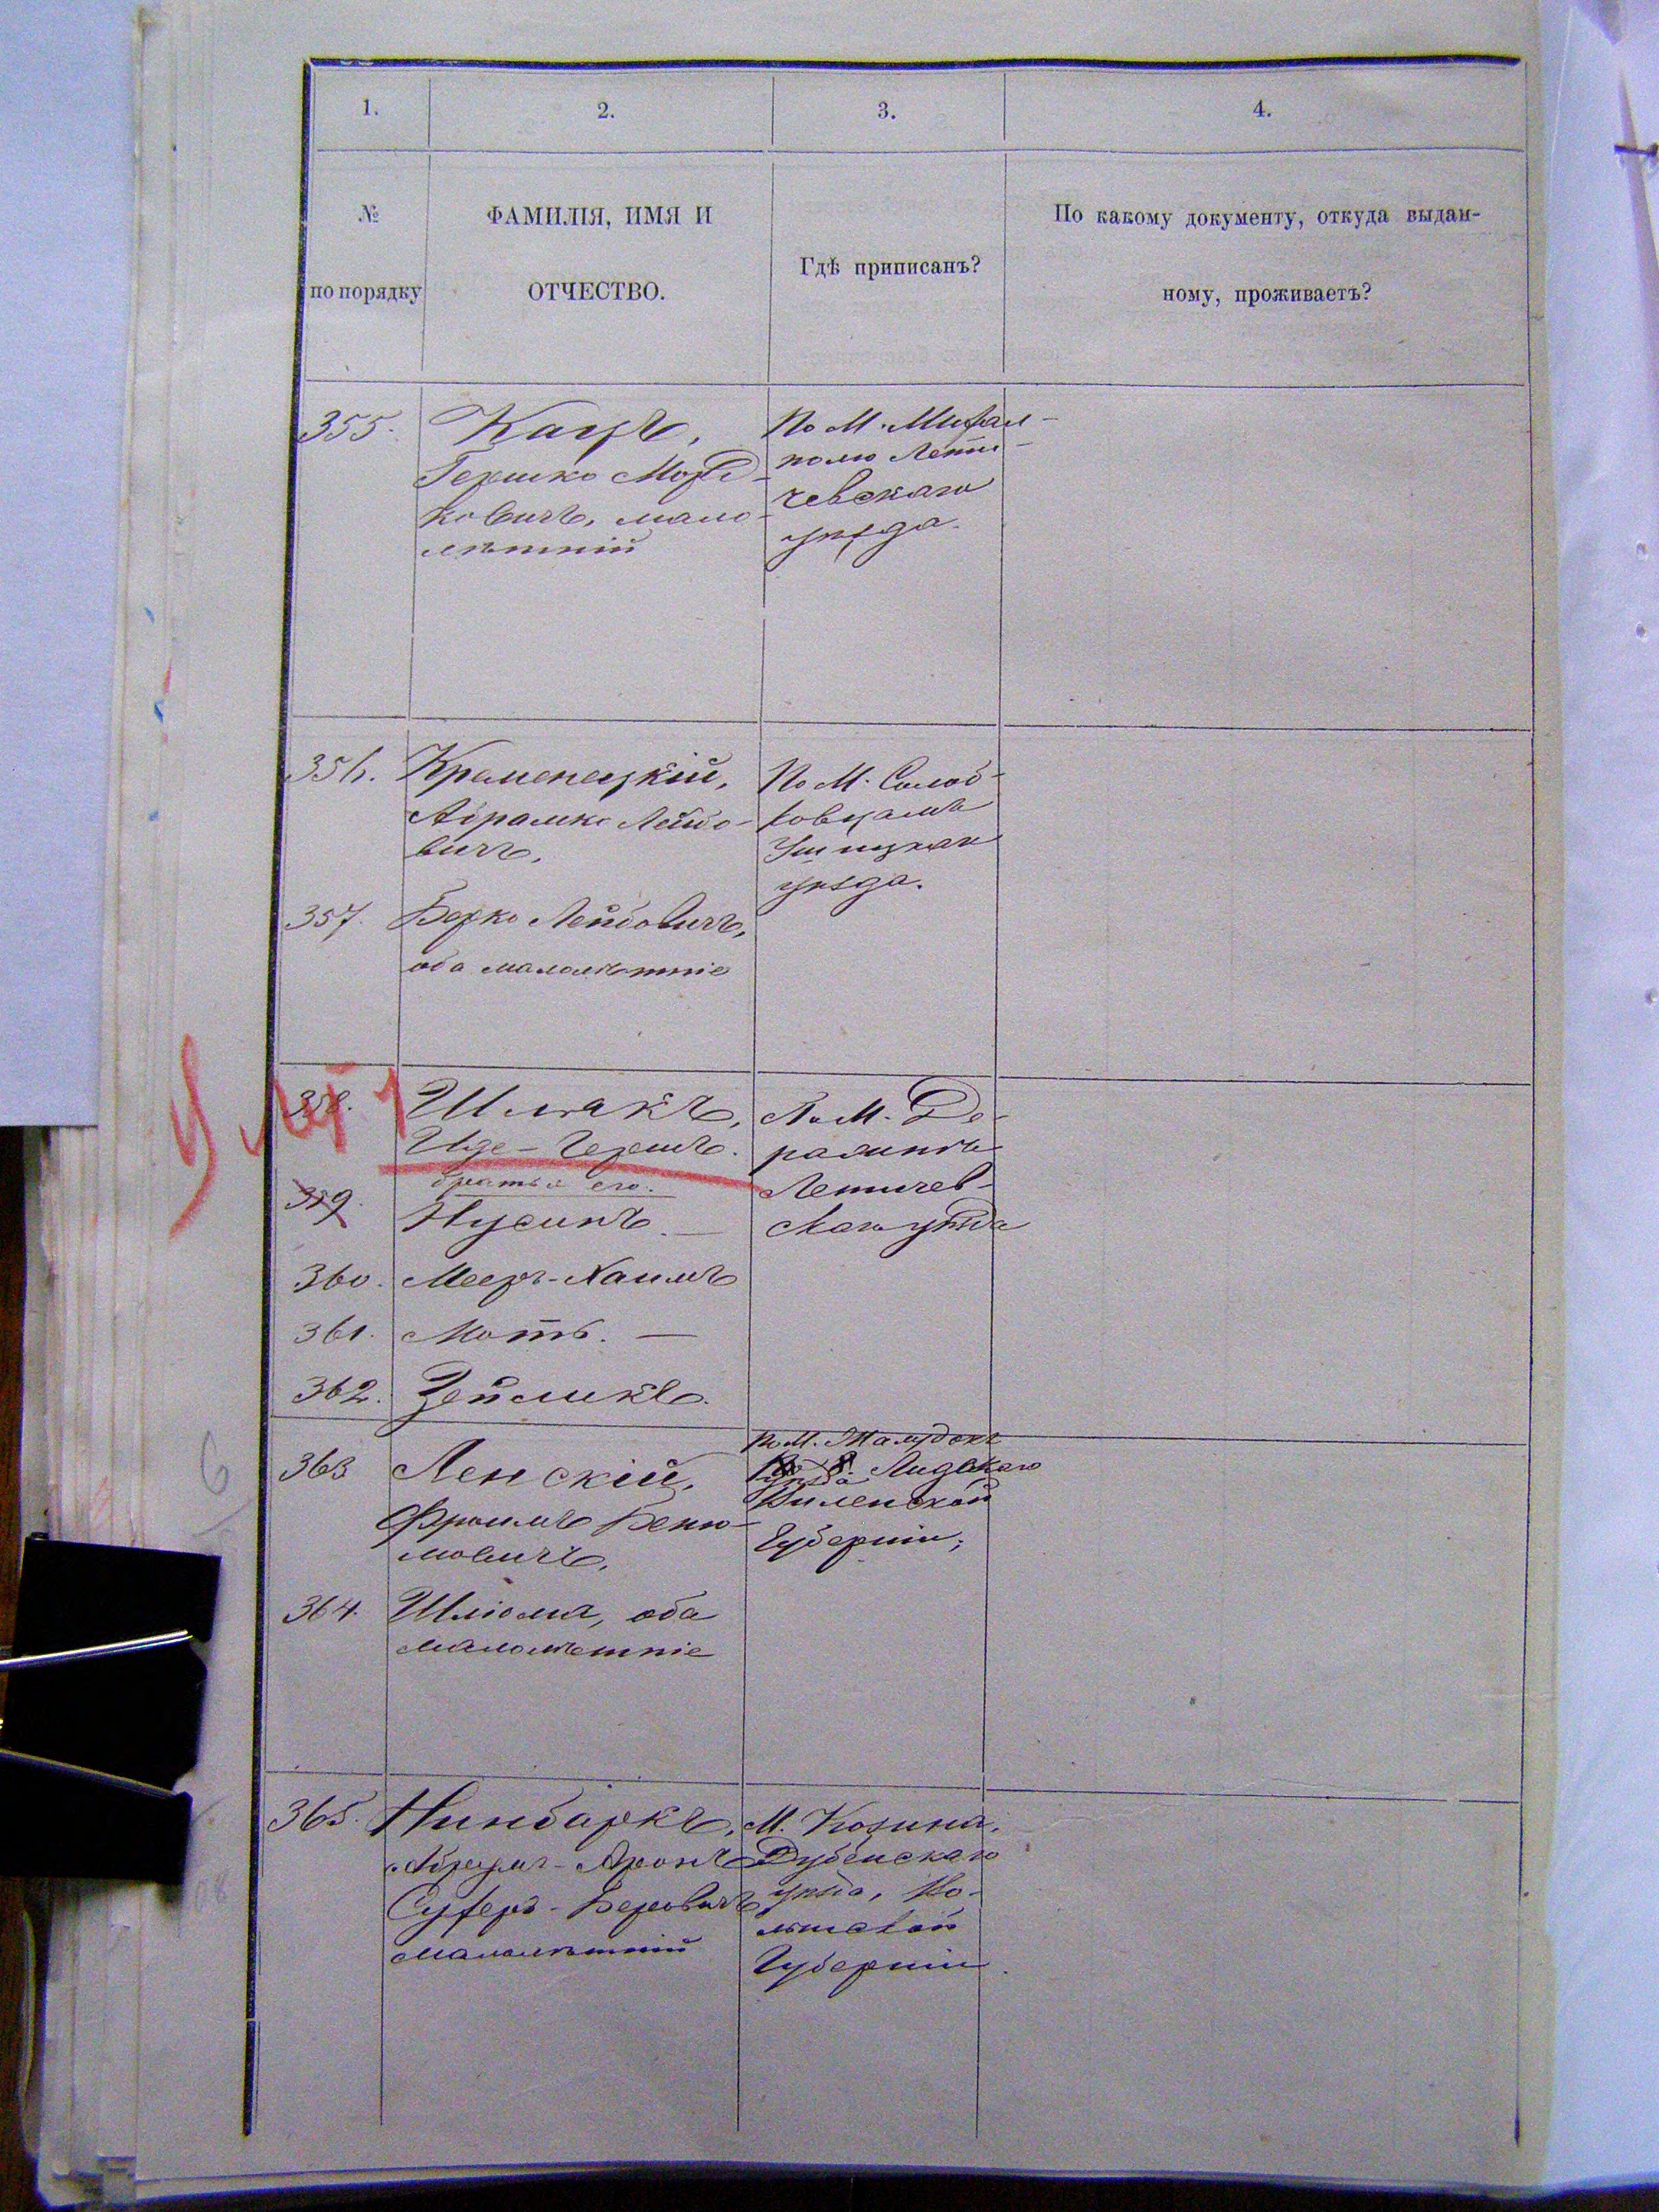 1. 2. 3. 4.
№ по порядку
ФАМИЛІЯ, ИМЯ И
ОТЧЕСТВО.
Гдѣ приписанъ?
По какому документу, откуда выдан-
ному, проживаетъ?
355. Кацъ,
ГершкоМорд-
ковичъ, мало-
лѣтній
По М. Михал-
полю Лети-
чевскаго
уѣзда.
356. Кременецкій,
Абрамко Лейбо-
вичъ,
357. Берко Лейбовичъ,
оба малолѣтніе
По М. Солоб-
ковцамъ
Ушицкаго
уѣзда.
358. Шпакъ,
Иде-Гершъ.
братья его.
359. Нусинъ. —
360. Мееръ-Хаимъ
361. Моть. —
362. Зейликъ.
По М. Де-
ражнѣ
Летичев-
скаго уѣзда
363 Ленскій,
Фроимъ Беню-
мовичъ,
364. Шліома, оба
малолѣтніе
По М.
уѣзда Лидскаго
Виленской
Губерніи;
365. Нинбаркъ,
Абрумъ-Аронъ
Суферъ-Беровичъ
малолѣтній
М. Козина,
Дубенскаго
уѣзда, Во-
лынской
Губерніи.